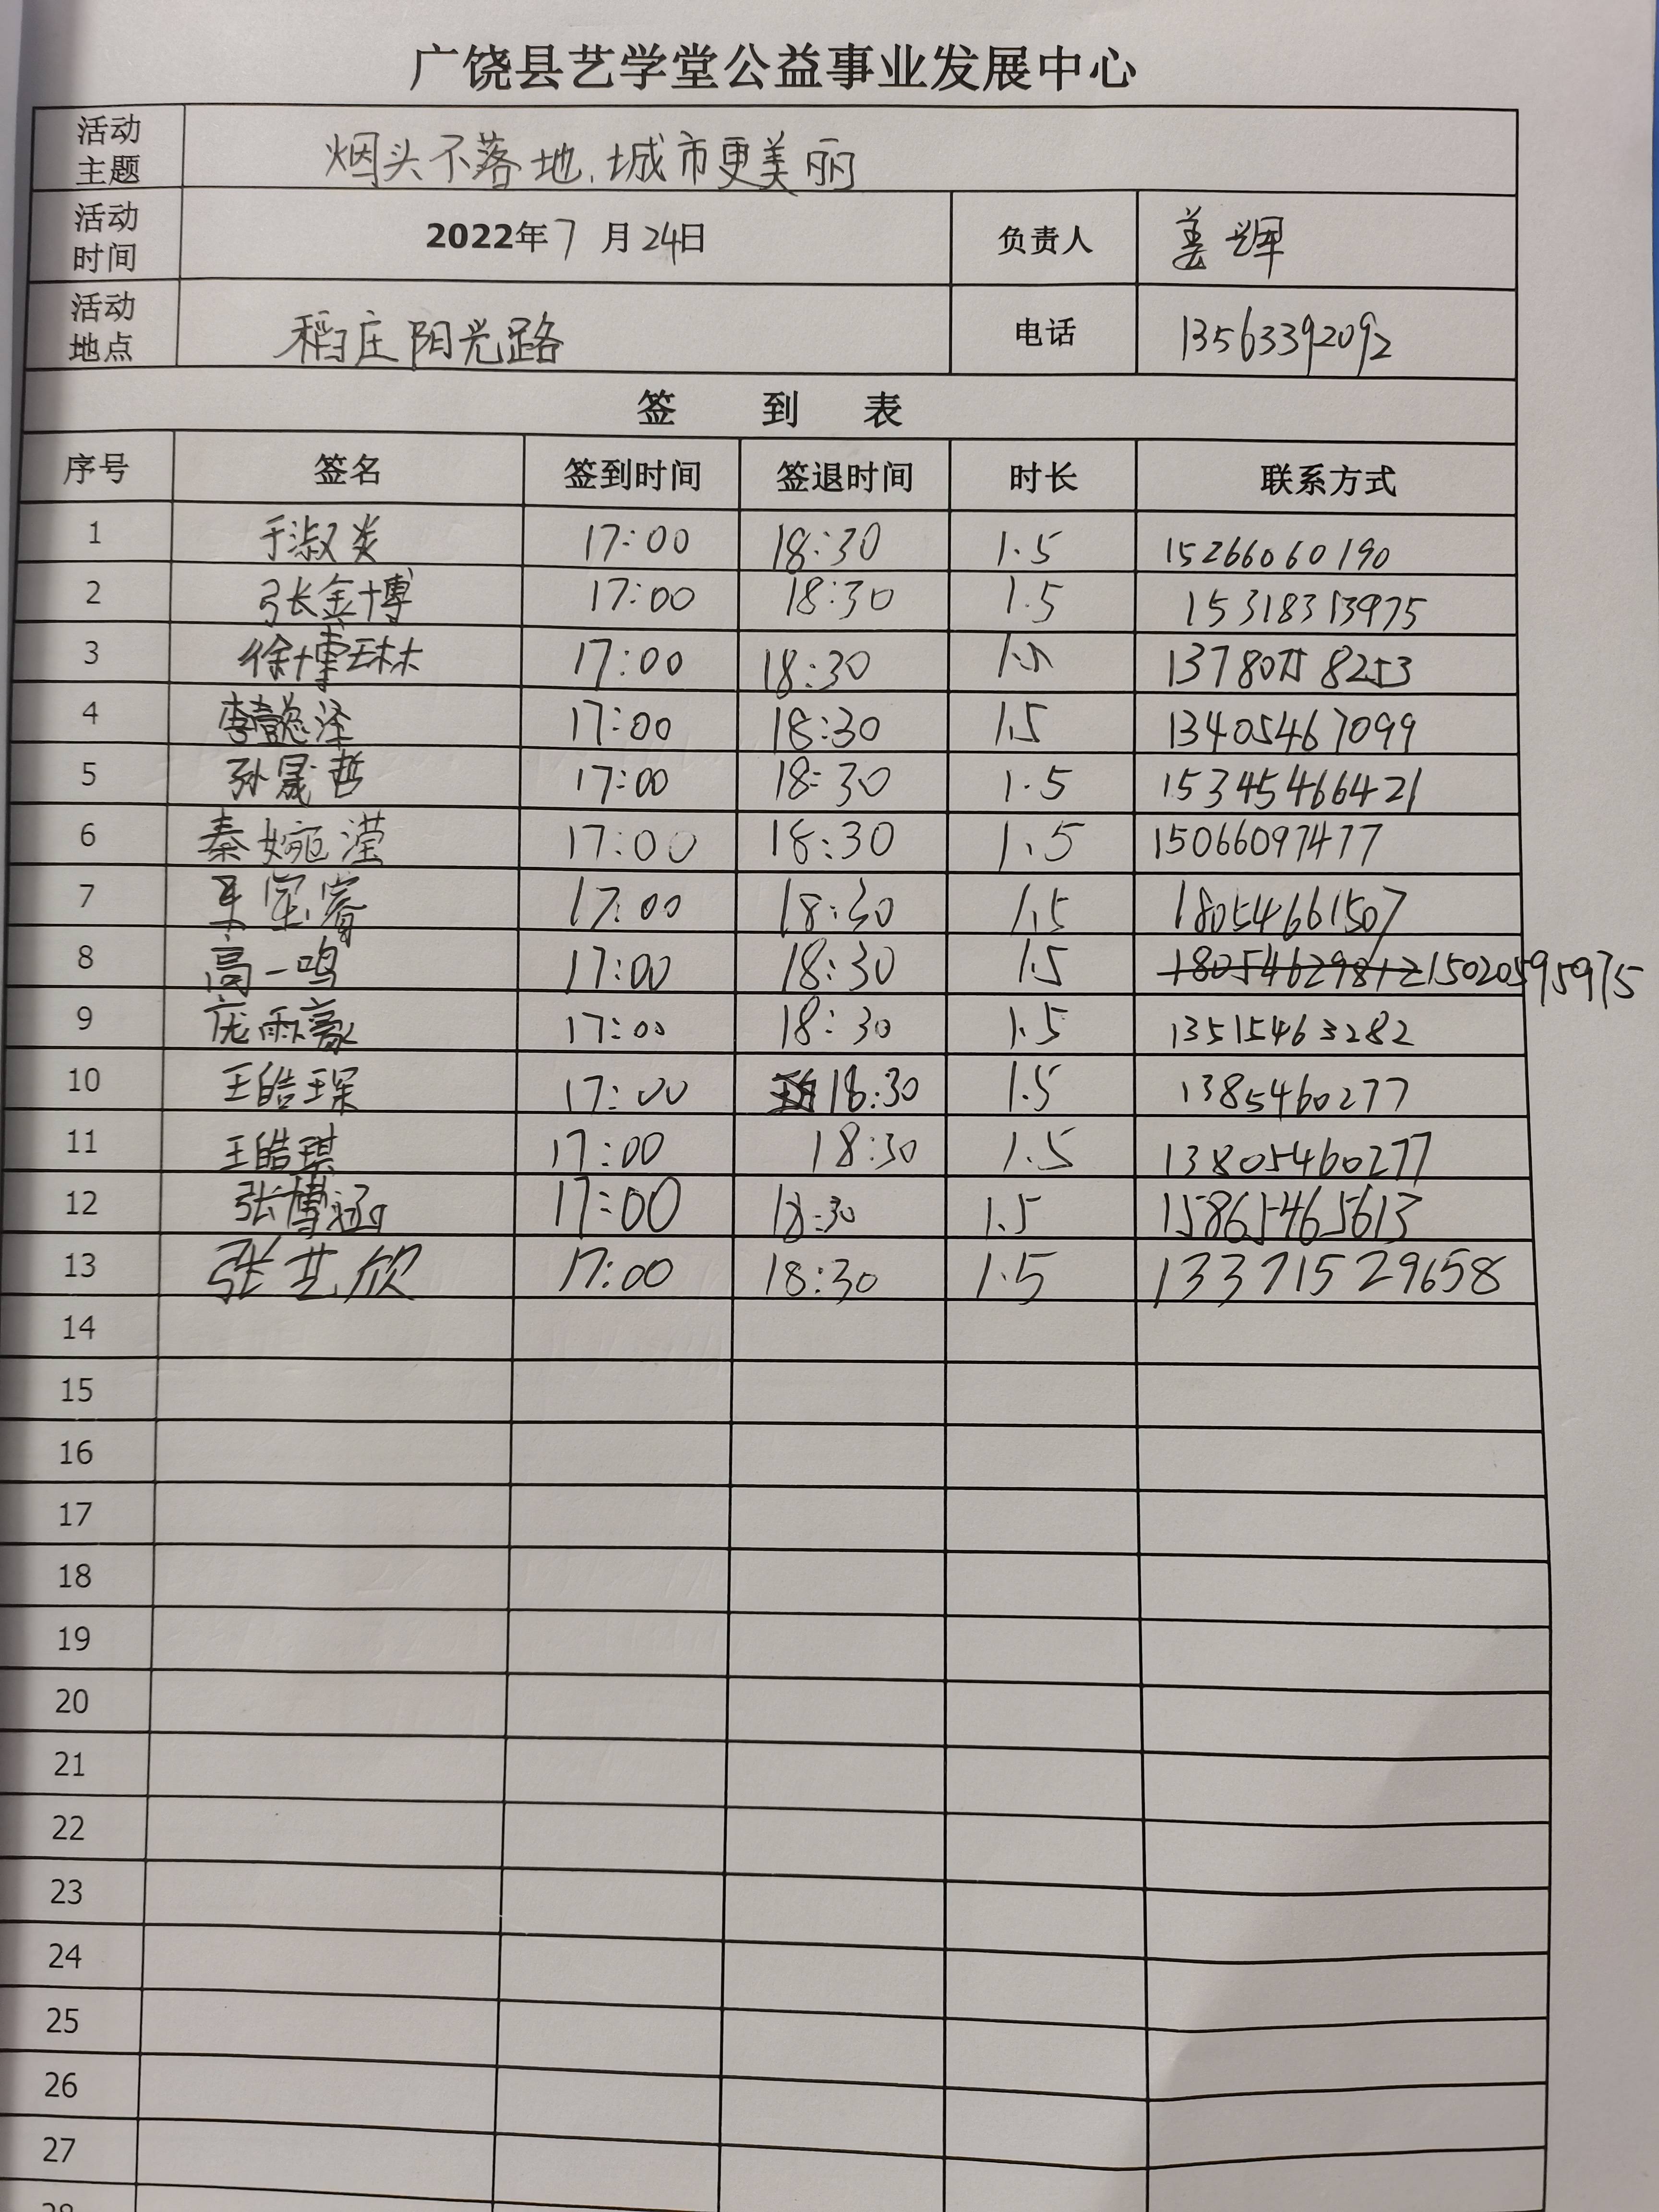 广饶县艺学堂公益事业发展中心
活动主题 烟头不落地，城市更美丽
活动时间 2022年7月24日 负责人 姜辉
活动地点 稻庄阳光路 电话 13563392092
签 到 表
序号 签名 签到时间 签退时间 时长 联系方式
1 于淑炎 17:00 18:30 1.5 15266060190
2 张金博 17:00 18:30 1.5 15318313975
3 徐博琳 17:00 18:30 1.5 8253
4 李懿泽 17:00 18:30 1.5 13405467099
5 孙晟哲 17:00 18:30 1.5 15345466421
6 秦婉滢 17:00 18:30 1.5 15066097477
7 17:00 18:30 1.5 18054661507
8 高一鸣 17:00 18:30 1.5 18054629812 15020595975
9 庞雨豪 17:00 18:30 1.5 13515463282
10 王皓琛 17:00 18:30 1.5 1385460277
11 王皓琪 17:00 18:30 1.5 13805460277
12 张博涵 17:00 18:30 1.5 15865465613
13 张艺欣 17:00 18:30 1.5 13371529658
14
15
16
17
18
19
20
21
22
23
24
25
26
27
28